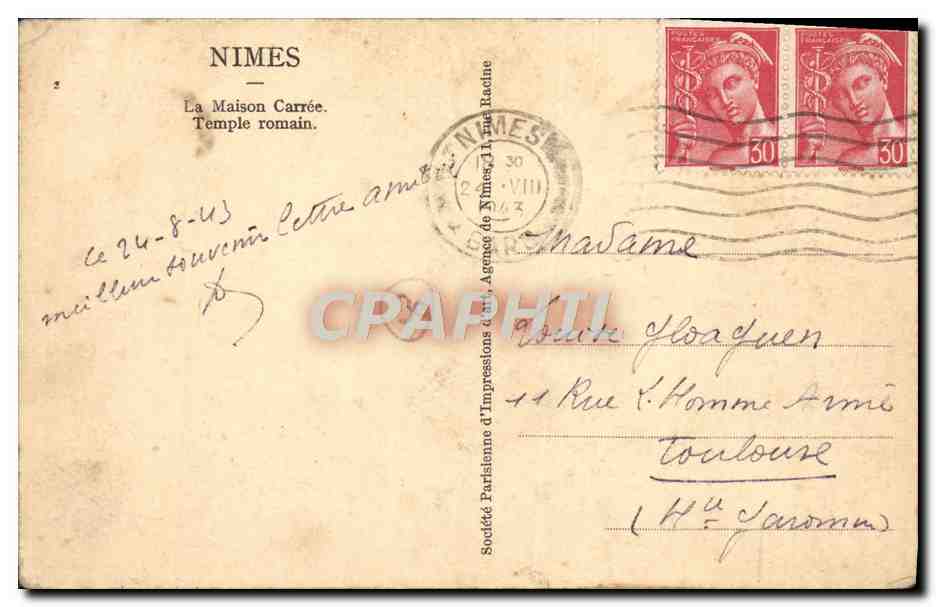 NIMES
2
La Maison Carrée.
Temple romain.
ce 24-8-43
meilleur souvenir lettre
Société Parisienne d'Impressions d'art, Agence de Nîmes, 11, rue Racine
NIMES
30
24 VIII
1943
GARD
POSTES
FRANÇAISES
30
POSTES
FRANÇAISES
30
CPAPHIL
Madame
Louise
11 Rue L'Homme Armé
Toulouse
(Hte Garonne)